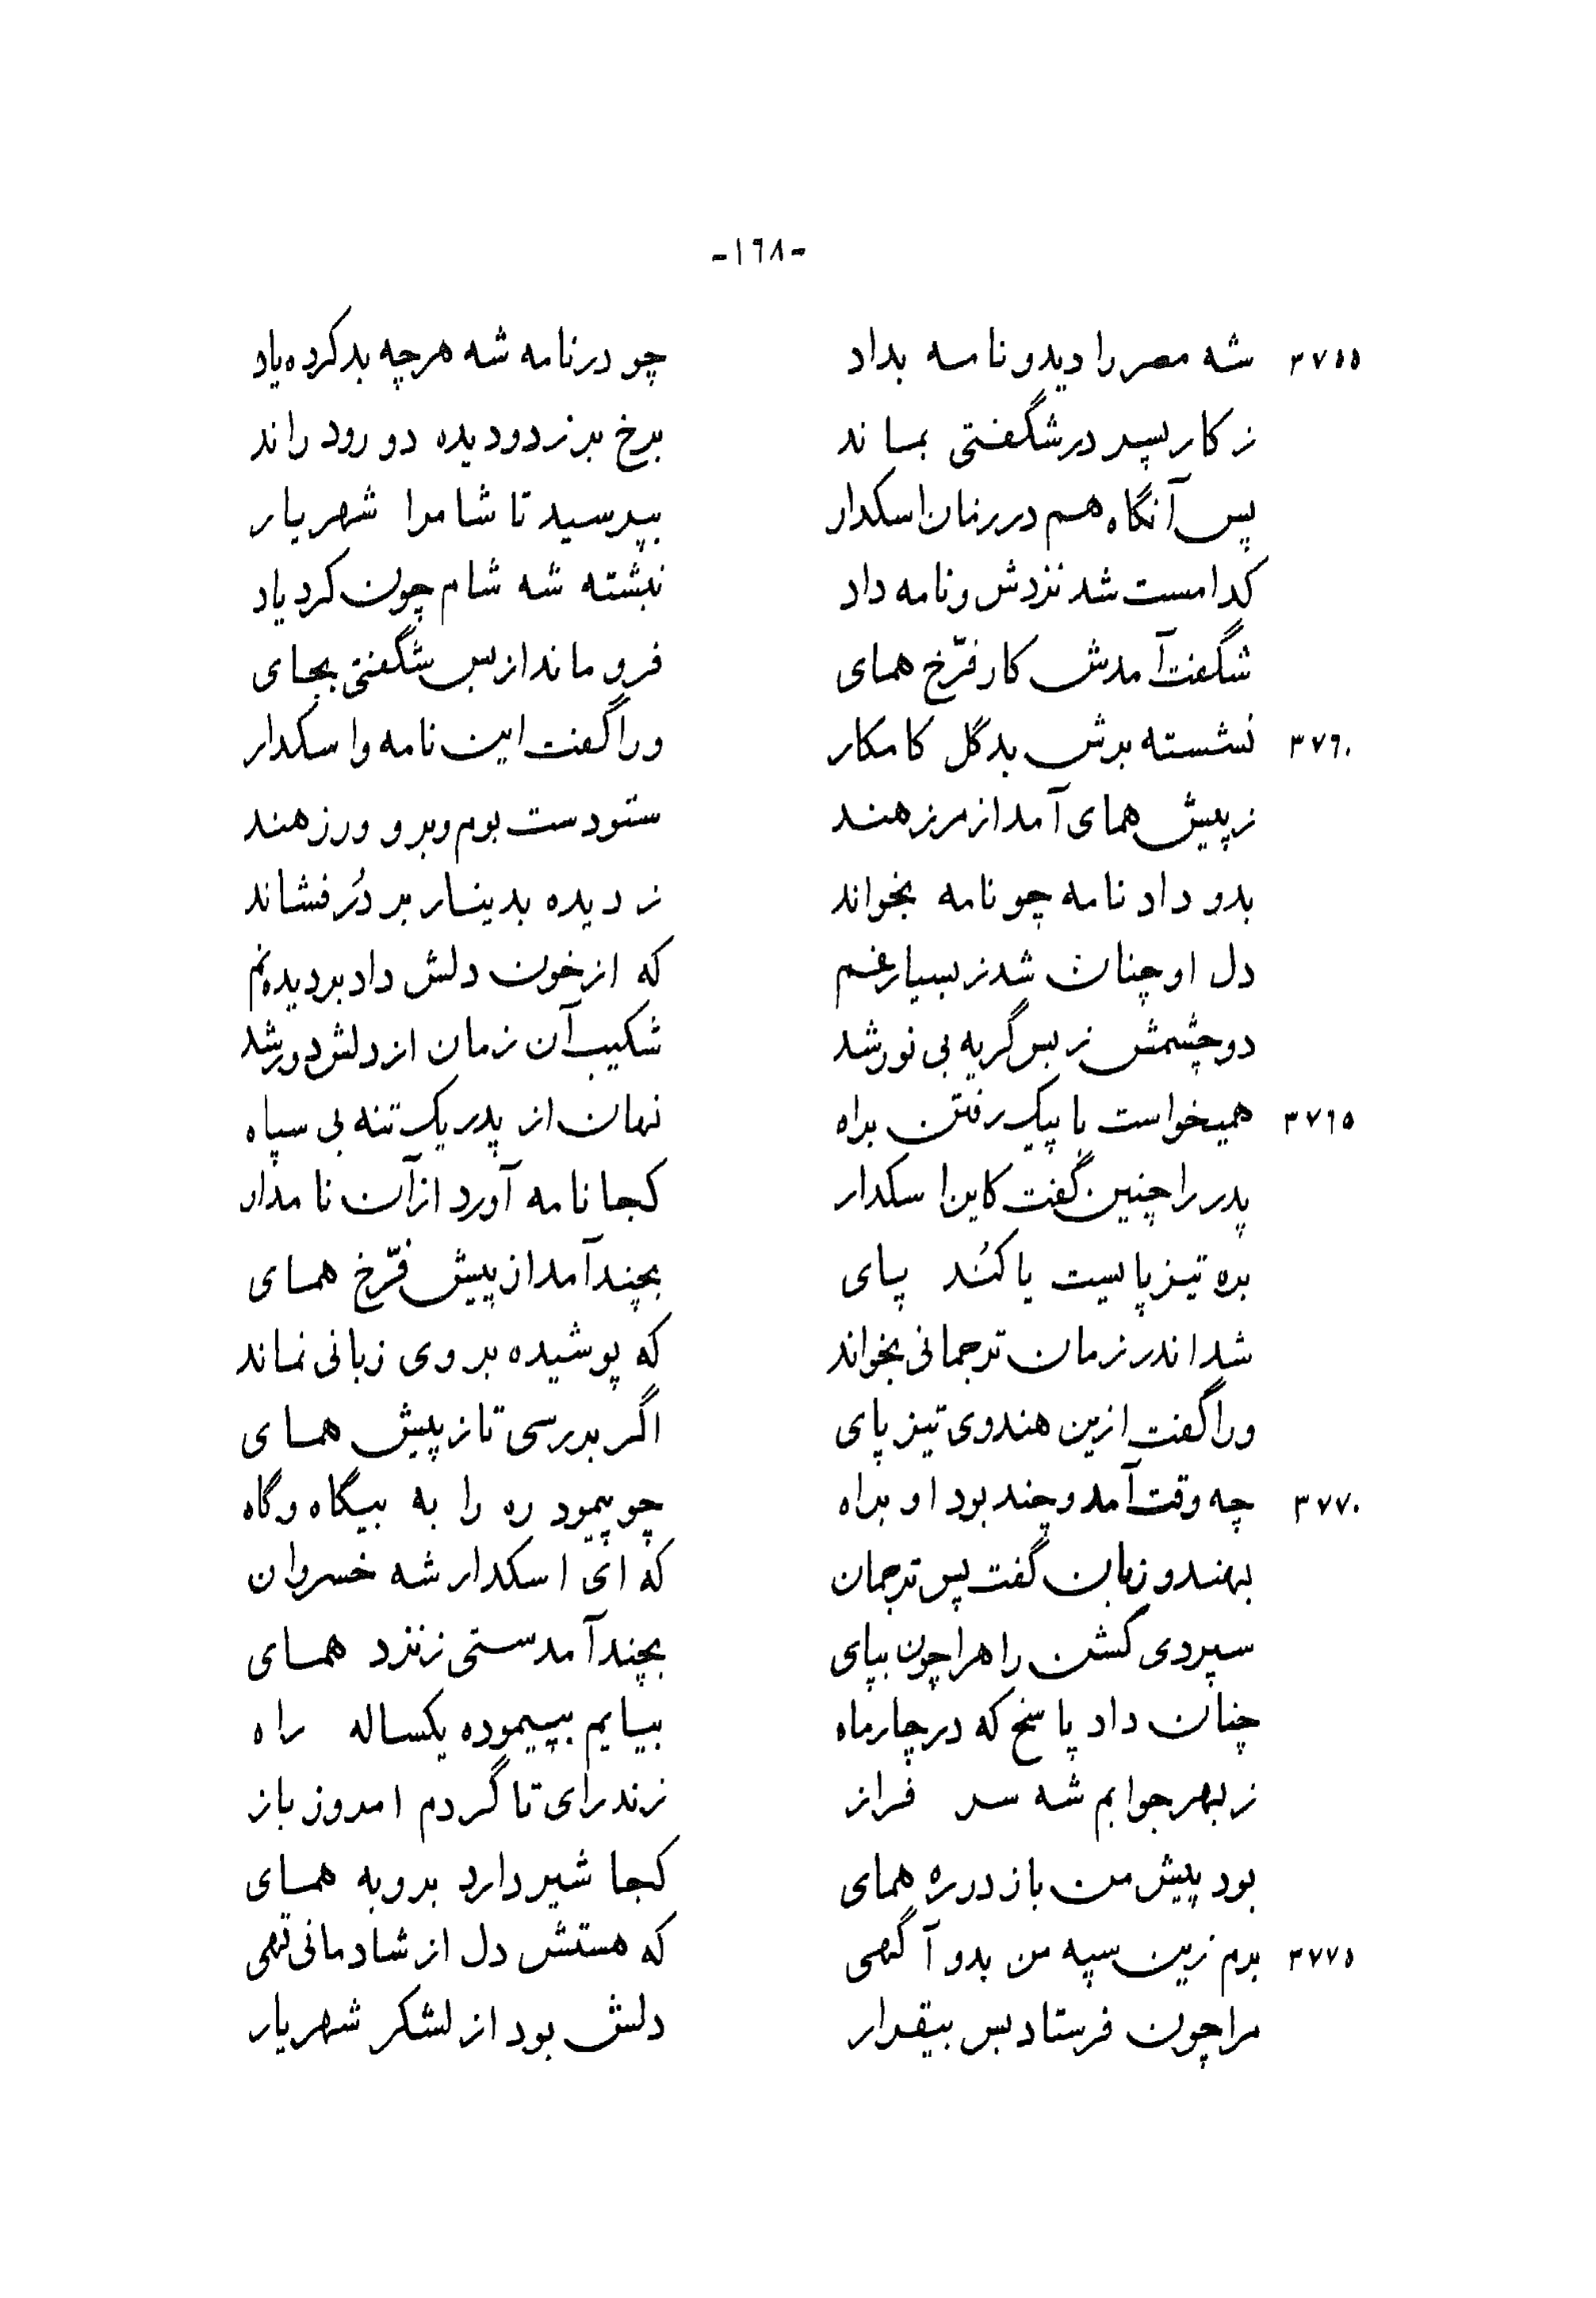 -١٦٨-
٣٧٥٥ شه مصر را دید و نامه بداد چو در نامه شه هرچه بد کرده یاد
ز کار پسر در شگفتی بماند برخ بر ز دو دیده دو رود راند
پس آنگاه هم در زمان اسکدار بپرسید تا شام را شهریار
کدامست شد نزدش و نامه داد نبشته شه شام چون کرد یاد
شگفت آمدش کار فرّخ همای فرو ماند از بس شگفتی بجای
٣٧٦٠ نشسته برش بد گل کامکار ورا گفت این نامه و اسکدار
ز پیش همای آمد از مرز هند ستودست بوم و بر و ورز هند
بدو داد نامه چو نامه بخواند ز دیده بدینار بر دُر فشاند
دل او چنان شد ز بسیار غم که از خون دلش داد بر دیده نم
دو چشمش ز بس گریه بی نور شد شکیب آن زمان از دلش دور شد
٣٧٦٥ همیخواست با پیک رفتن براه نهان از پدر یک تنه بی سپاه
پدر را چنین گفت کاین اسکدار کجا نامه آورد از آن نامدار
بره تیز پایست یا کُند پای بچند آمد از پیش فرّخ همای
شد اندر زمان ترجمانی بخواند که پوشیده بر وی زبانی نماند
ورا گفت ازین هندوی تیز پای اگر بررسی تا ز پیش همای
٣٧٧٠ چه وقت آمد و چند بود او براه چو پیمود ره را به بیگاه و گاه
بهندو زبان گفت پس ترجمان که ای اسکدار شه خسروان
سپردی کشن راهرا چون بپای بچند آمدستی ز نزد همای
چنان داد پاسخ که در چار ماه بیایم بپیموده یکساله راه
ز بهر جوابم شه سر فراز زند رای تا گردم امروز باز
بود پیش من باز در ره همای کجا شیر دارد بروبه همای
٣٧٧٥ برم زین سپه من بدو آگهی که هستش دل از شادمانی تهی
مرا چون فرستاد بس بیقرار دلش بود از لشکر شهریار